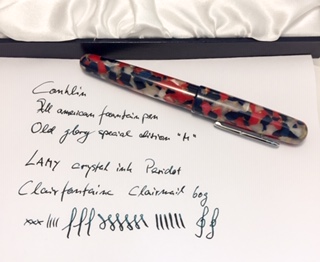 Conklin
All american fountain pen
Old glory special edition "M"
LAMY crystal ink Peridot
Clairfontaine Clairmail 60g
xxx